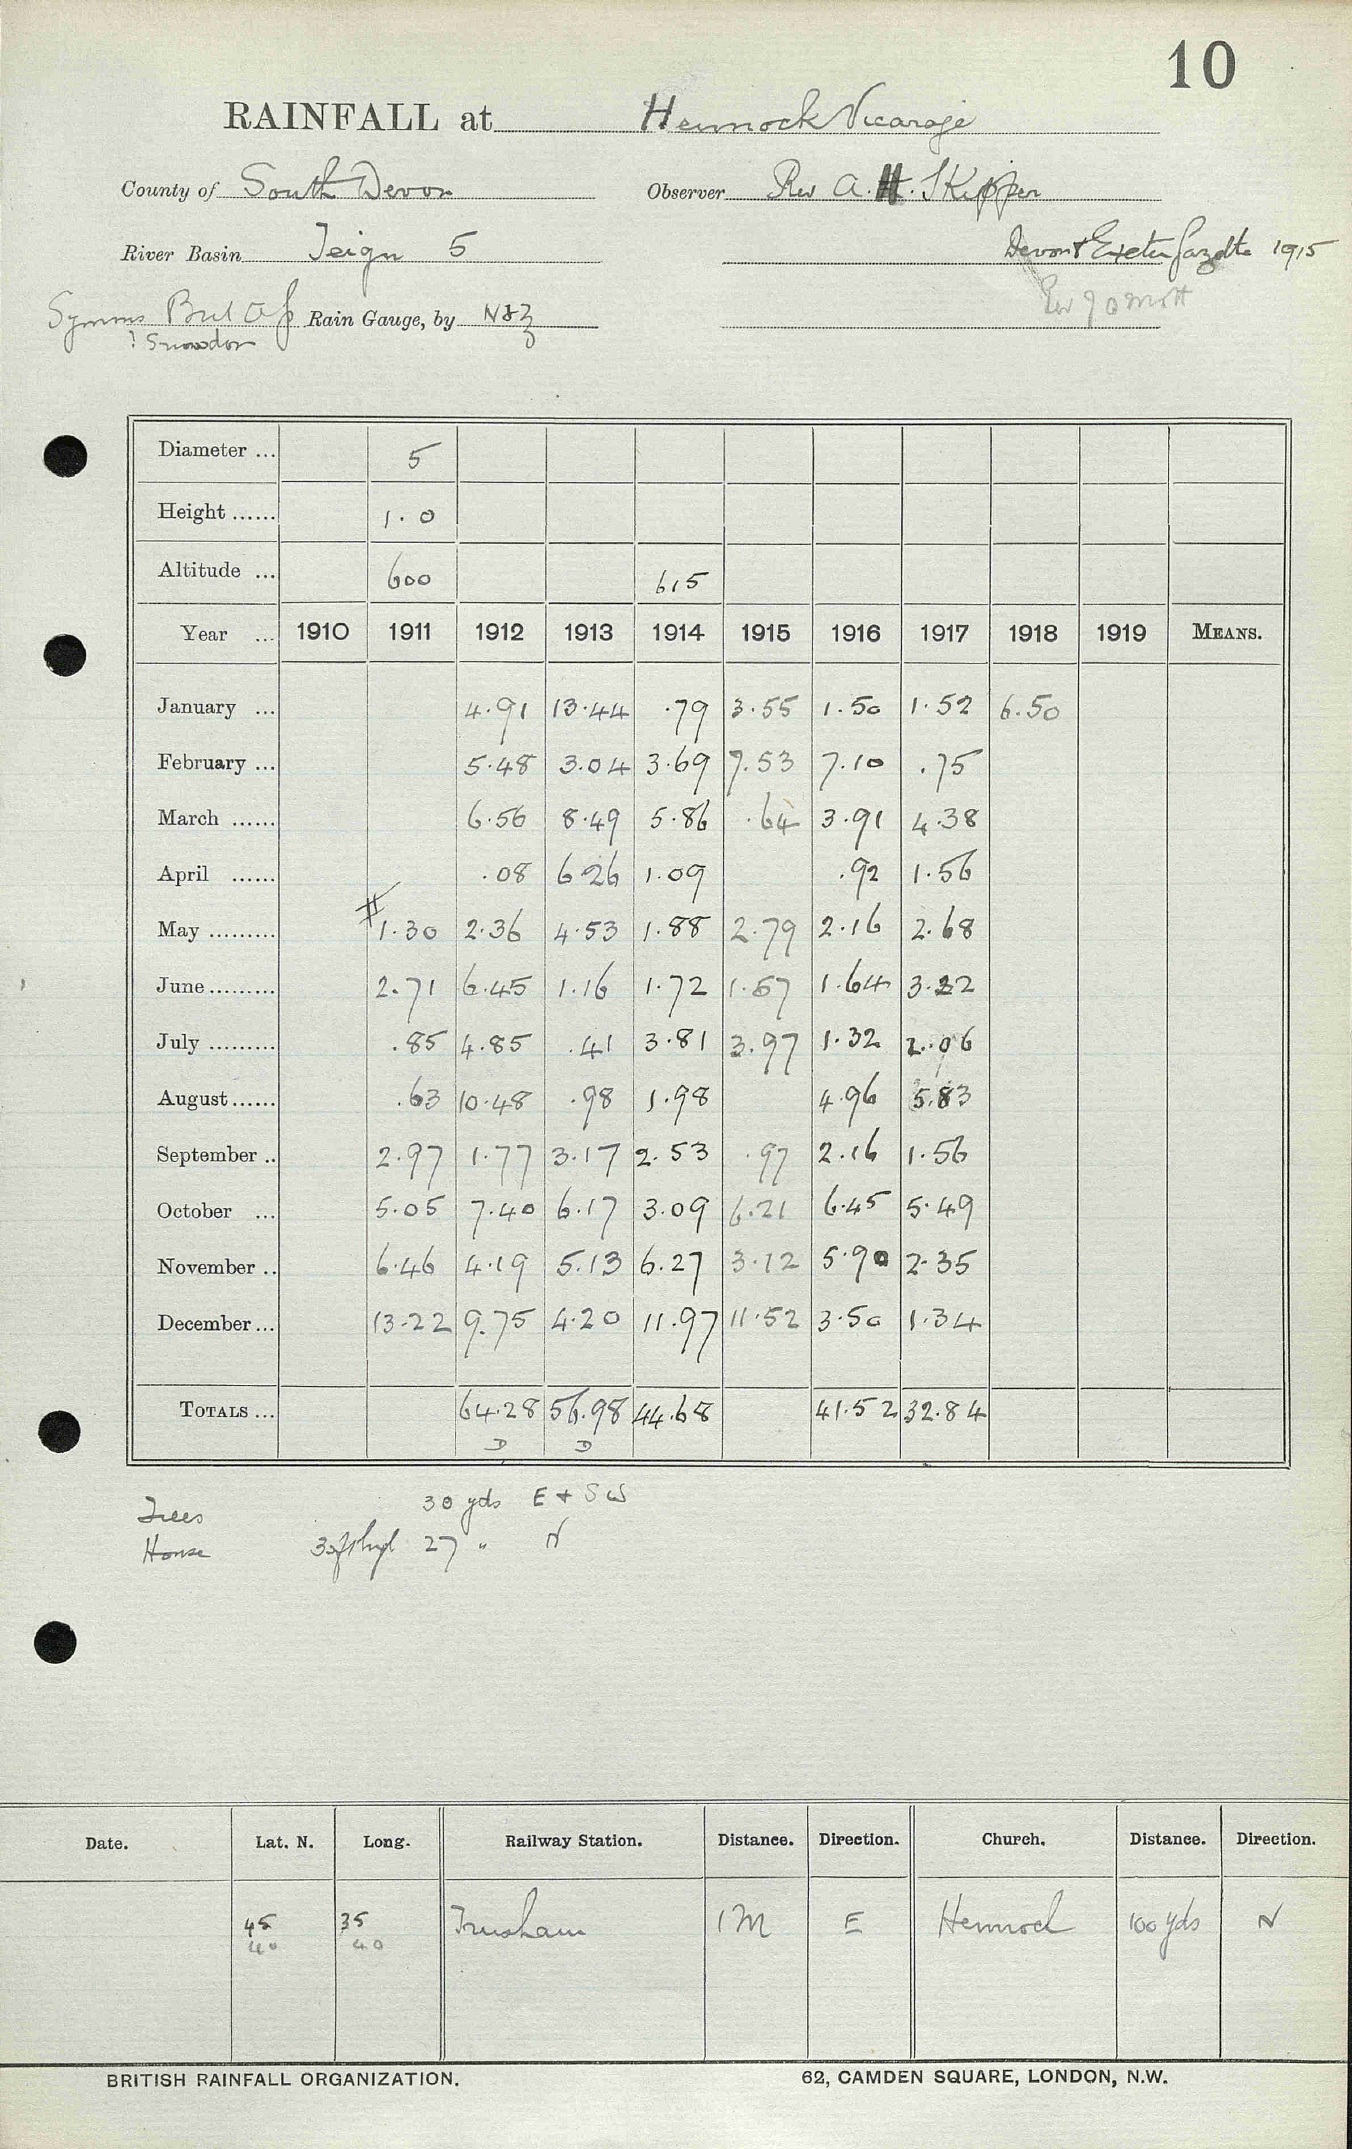 10
RAINFALL at Hennock Vicarage
County of South Devon Observer Rev A. H. Skipper
River Basin Teign 5 Devon & Exeter Gazette 1915
Symons Rain Gauge, by N & Z Rev J O Mott
? Snowdon
Diameter ... 5
Height ...... 1.0
Altitude ... 600 615
Year ... 1910 1911 1912 1913 1914 1915 1916 1917 1918 1919 MEANS.
January ... 4.91 13.44 .79 3.55 1.50 1.52 6.50
February ... 5.48 3.04 3.69 7.53 7.10 .75
March ...... 6.56 8.49 5.86 .64 3.91 4.38
April ...... .08 6.26 1.09 .92 1.56
May ......... 1.30 2.36 4.53 1.88 2.79 2.16 2.68
June ......... 2.71 6.45 1.16 1.72 1.57 1.64 3.22
July ......... .85 4.85 .41 3.81 3.97 1.32 2.06
August ...... .63 10.48 .98 1.98 4.96 5.83
September .. 2.97 1.77 3.17 2.53 .97 2.16 1.56
October ... 5.05 7.40 6.17 3.09 6.21 6.45 5.49
November .. 6.46 4.19 5.13 6.27 3.12 5.90 2.35
December ... 13.22 9.75 4.20 11.97 11.52 3.50 1.34
TOTALS ... 64.28 56.98 44.68 41.52 32.84
D D
Trees 30 yds E + SW
House 27 " N
Date. Lat. N. Long. Railway Station. Distance. Direction. Church. Distance. Direction.
45 35 Trusham 1 M E Hennock 100 yds N
40 40
BRITISH RAINFALL ORGANIZATION. 62, CAMDEN SQUARE, LONDON, N.W.